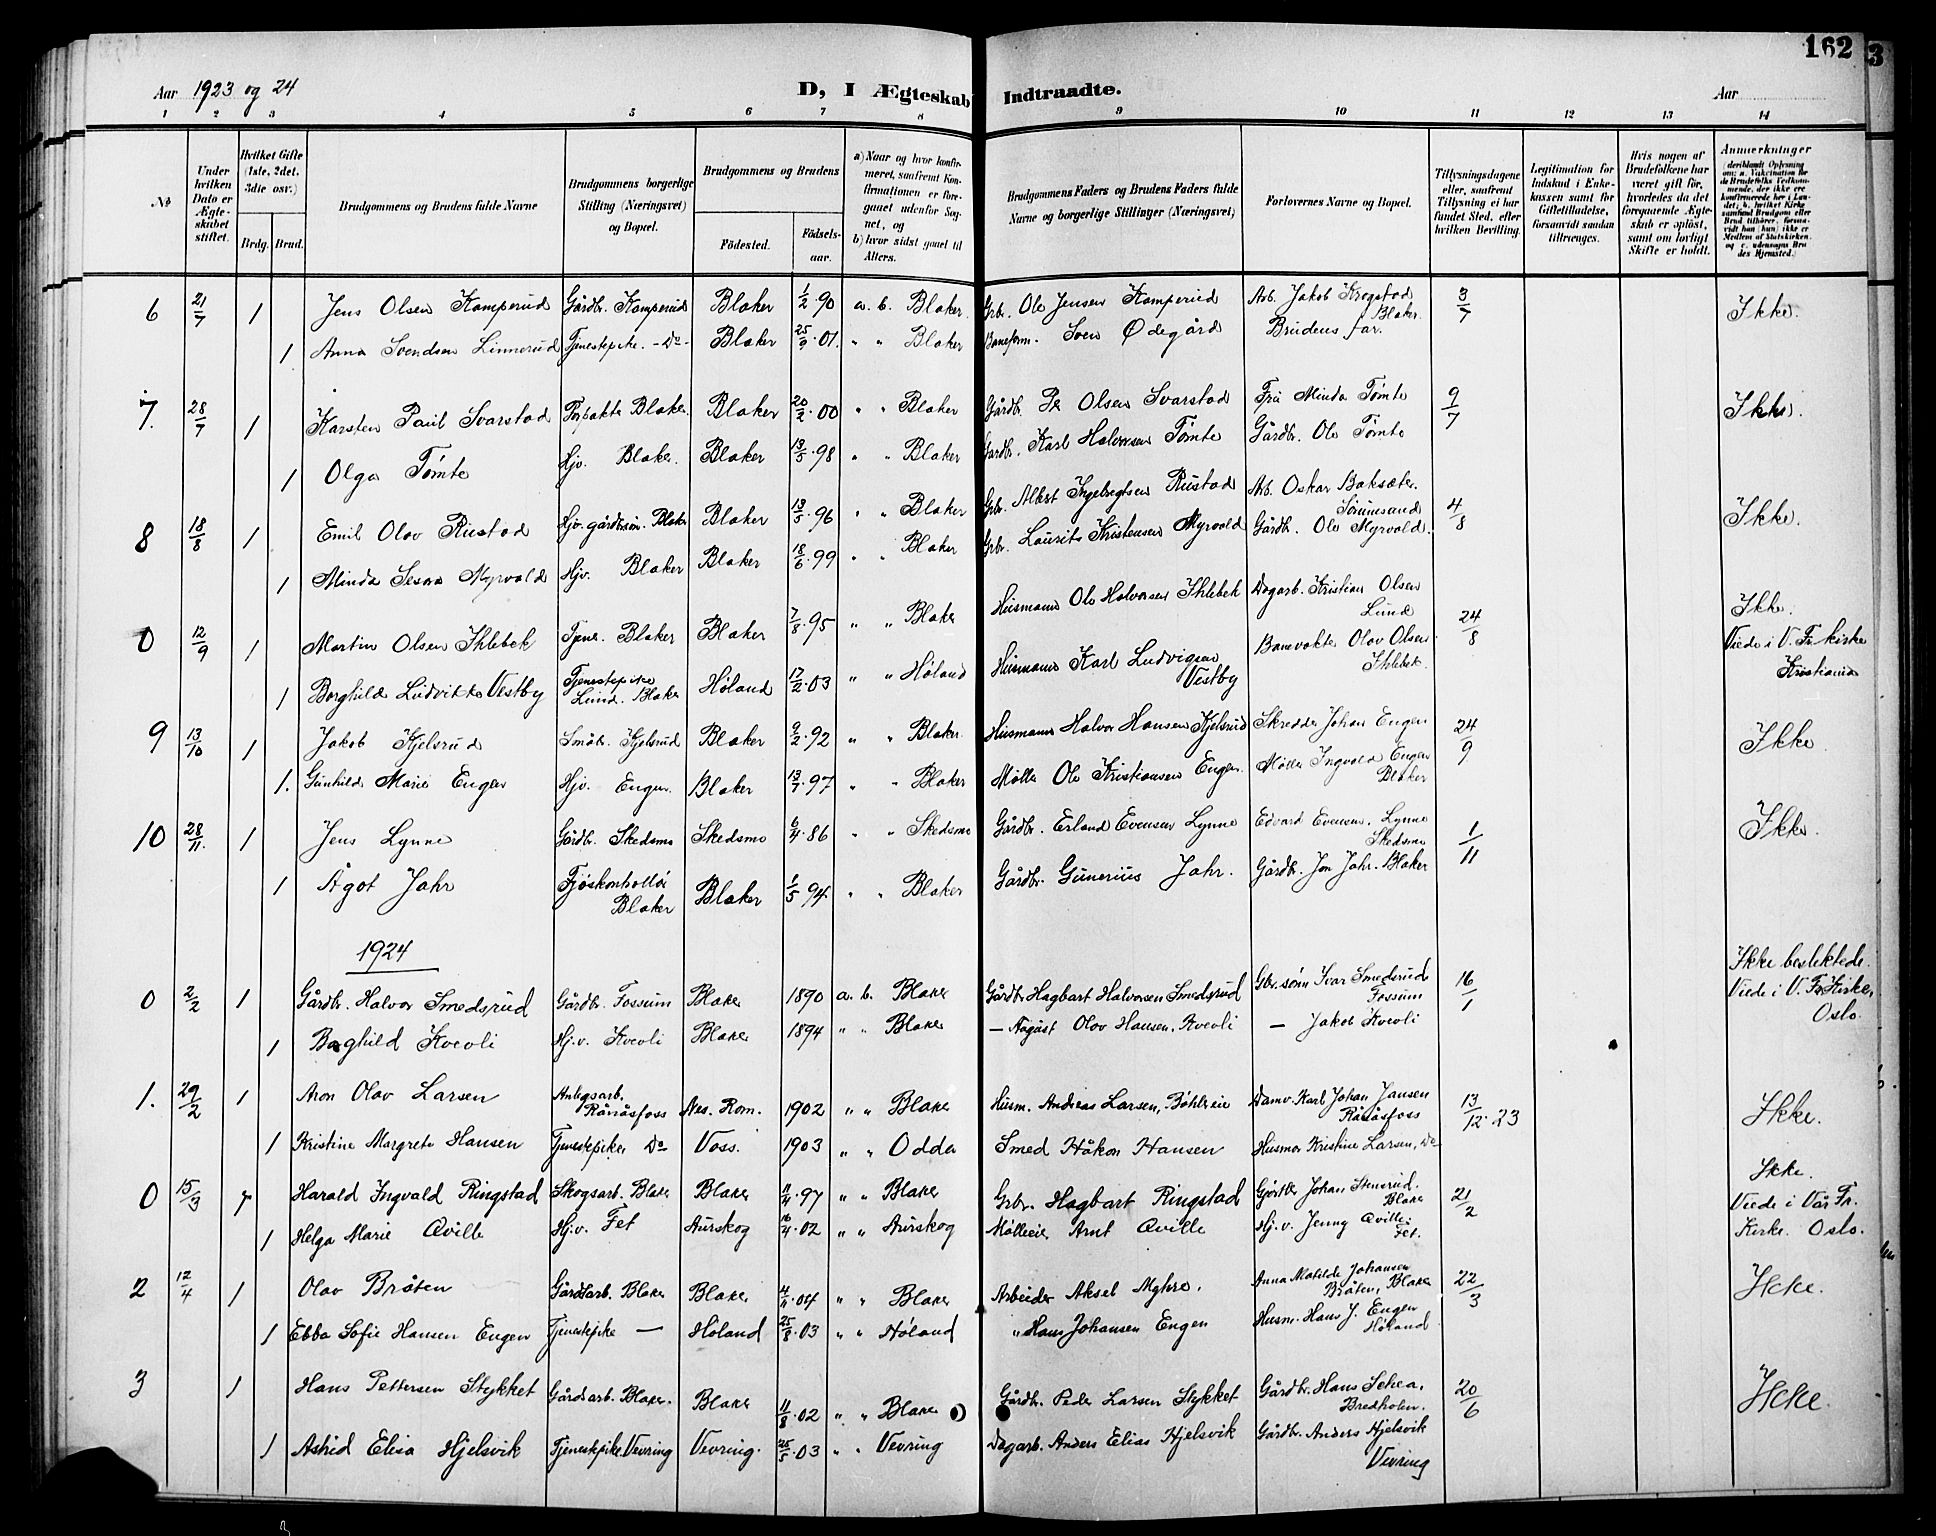 162
3
Aar 1923 og 24
D, I Ægteskab Indtraadte.
Aar
1 2 3 4 5 6 7 8 9 10 11 12 13 14
No
Under hvilken Dato er Ægteskabet stiftet.
Hvilket Gifte (1ste, 2det, 3die osv.)
Brdg. Brud.
Brudgommens og Brudens fulde Navne
Brudgommens borgerlige Stilling (Næringsvei) og Bopæl.
Brudgommens og Brudens
Fødested.
Fødselsaar.
a) Naar og hvor konfirmeret, saafremt Konfirmationen er foregaaet udenfor Sognet, og
b) hvor sidst gaaet til Alters.
Brudgommens Faders og Brudens Faders fulde Navne og borgerlige Stillinger (Næringsvei)
Forlovernes Navne og Bopæl.
Tillysningsdagene eller, saafremt Tillysning ei har fundet Sted, efter hvilken Bevilling.
Legitimation for Indskud i Enkekassen samt for Giftetilladelse, forsaavidt saadan tiltrænges.
Hvis nogen af Brudefolkene har været gift før, hvorledes da det foregaaende Ægteskab er opløst, samt om lovligt Skifte er holdt.
Anmerkninger
6 21/7 1 Jens Olsen Kamperud Gårdbr. Kamperud Blaker 1/2 90 a. b. Blaker. Grbr. Ole Jensen Kamperud Arb. Jakob Krogstad Blaker. 3/7 Ikke.
1 Anna Svendsen Linnerud Tjenestepike -Do- Blaker 25/9 01. " " Blaker Baneform. Sven Ødegård Brudens far.
7. 28/7 1 Karsten Paul Svarstad Blaker Blaker 20/2 00 " " Blaker Gårdb. Olsen Svarstad Fru Minda Tømte 9/7 Ikke.
1 Olga Tømte Hjv. Blaker. Blaker 13/5 98 " " Blaker Gardbr. Karl Halvorsen Tømte Gårdbr. Ole Tømte
8 18/8 1 Emil Olav Rustad Hjv. gårdbrsøn. Blaker Blaker 13/5 96 " " Blaker Grbr. Albert Ingebregtsen Rustad Arb. Oskar Baksæter. Sørumsand 4/8 Ikke.
1 Minda Myrvold Hjv. Blaker Blaker 18/6 99 " " Blaker Grbr. Laurits Kristensen Myrvold Gårdbr. Ole Myrvold.
0 12/9 1 Martin Olsen Ihlebek Tjene. Blaker Blaker 7/8 95 " " Blaker Husmann Ole Halvorsen Ihlebek Dagarb. Kristian Olsen Lund 24/8 Ikke. Viede i V. Fr kirke Kristiania
1 Borghild Ludvikke Vestby Tjenestepike Lund. Blaker Høland 17/2 03 " " Høland Husmann Karl Ludvigsen Vestby Banevokter Olav Olsen Ihlebek.
9 13/10 1 Jakob Kjelsrud Småbr. Kjelsrud Blaker 9/2 92 " " Blaker. Husmann Halvor Hansen Kjelsrud Skredder Johan Engen 24/9 Ikke.
1. Gunhilda Marie Engen Hjv. Engen. Blaker 13/7 97 " " Blaker Møller Ole Kristiansen Engen. Møller Ingvald Engen Blaker
10 28/11. 1 Jens Lynne Gårdbr. Skedsmo Skedsmo 6/4 86 " " Skedsmo Gårdbr. Erland Evensen Lynne Edvard Evensen. Lynne Skedsmo 1/11 Ikke.
1 Ågot Jahr Fjøskontrollør Blaker Blaker 1/5 94. " " Blaker Gårdbr. Gunerius Jahr. Gårdbr. Jon Jahr. Blaker
1924
0 2/2 1 Gårdbr. Halvor Smedsrud Gårdbr. Fossum Blaker 1890 a. b. Blaker Gårdbr Hagbart Halvorsen Smedsrud Gbr. sønn Ivar Smedsrud Fossum 16/1 Ikke beslektede. Viede i V. Fr Kirke, Oslo.
1 Borghild Kveoli Hj.v. Kveoli Blaker 1894 " " Blaker — August Olav Hansen, Kveoli — Jakob Kveoli
1. 29/2 1 Aron Olav Larsen Anlegsarb. Rånåsfoss Nes. Rom. 1902 " " Blaker Husm. Andreas Larsen, Bøhlereie Damv. Karl Johan Jansen Rånåsfoss 13/12. 23 Ikke.
1 Kristine Margrete Hansen Tjenestepike Do Voss. 1903 " " Odda Smed Håkon Hansen Husmor Kristine Larsen, Do
0 15/3 1 Harald Ingvald Ringstad Skogsarb. Blaker Blaker 11/4 97 " " Blaker Grbr. Hagbart Ringstad Johan Stenerud. Blaker 21/2 Ikke. Viede i Vår Fr. Kirke. Oslo.
1 Helga Marie Qville Hj.v. Fet Aurskog 16/4 02 " " Aurskog Mølleeier Arnt Qville Hj.v. Jenny Qville. Fet.
2 12/4 1 Olav Bråten Gårdsarb. Blaker Blaker 4/11 04 " " Blaker Arbeider Aksel Myhre. Anna Matilde Johansen Bråten, Blaker 22/3 Ikke.
1 Ebba Sofie Hansen Engen Tjenestepike — Høland 25/8 03 " " Høland " Hans Johansen Engen Husm. Hans J. Engen Høland
3 1 Hans Pettersen Stykket Gårdsarb. Blaker. Blaker 11/8 02 " " Blaker Gårdbr. Peder Larsen Stykket Gårdbr. Hans Schea, Bredholen. 20/6 Ikke.
1 Astrid Elisa Hjelsvik Tjenestepike Vevring Vevring. 25/5 03 " " Vevring Dagarb. Anders Elias Hjelsvik Gårdbr. Anders Hjelsvik Vevring